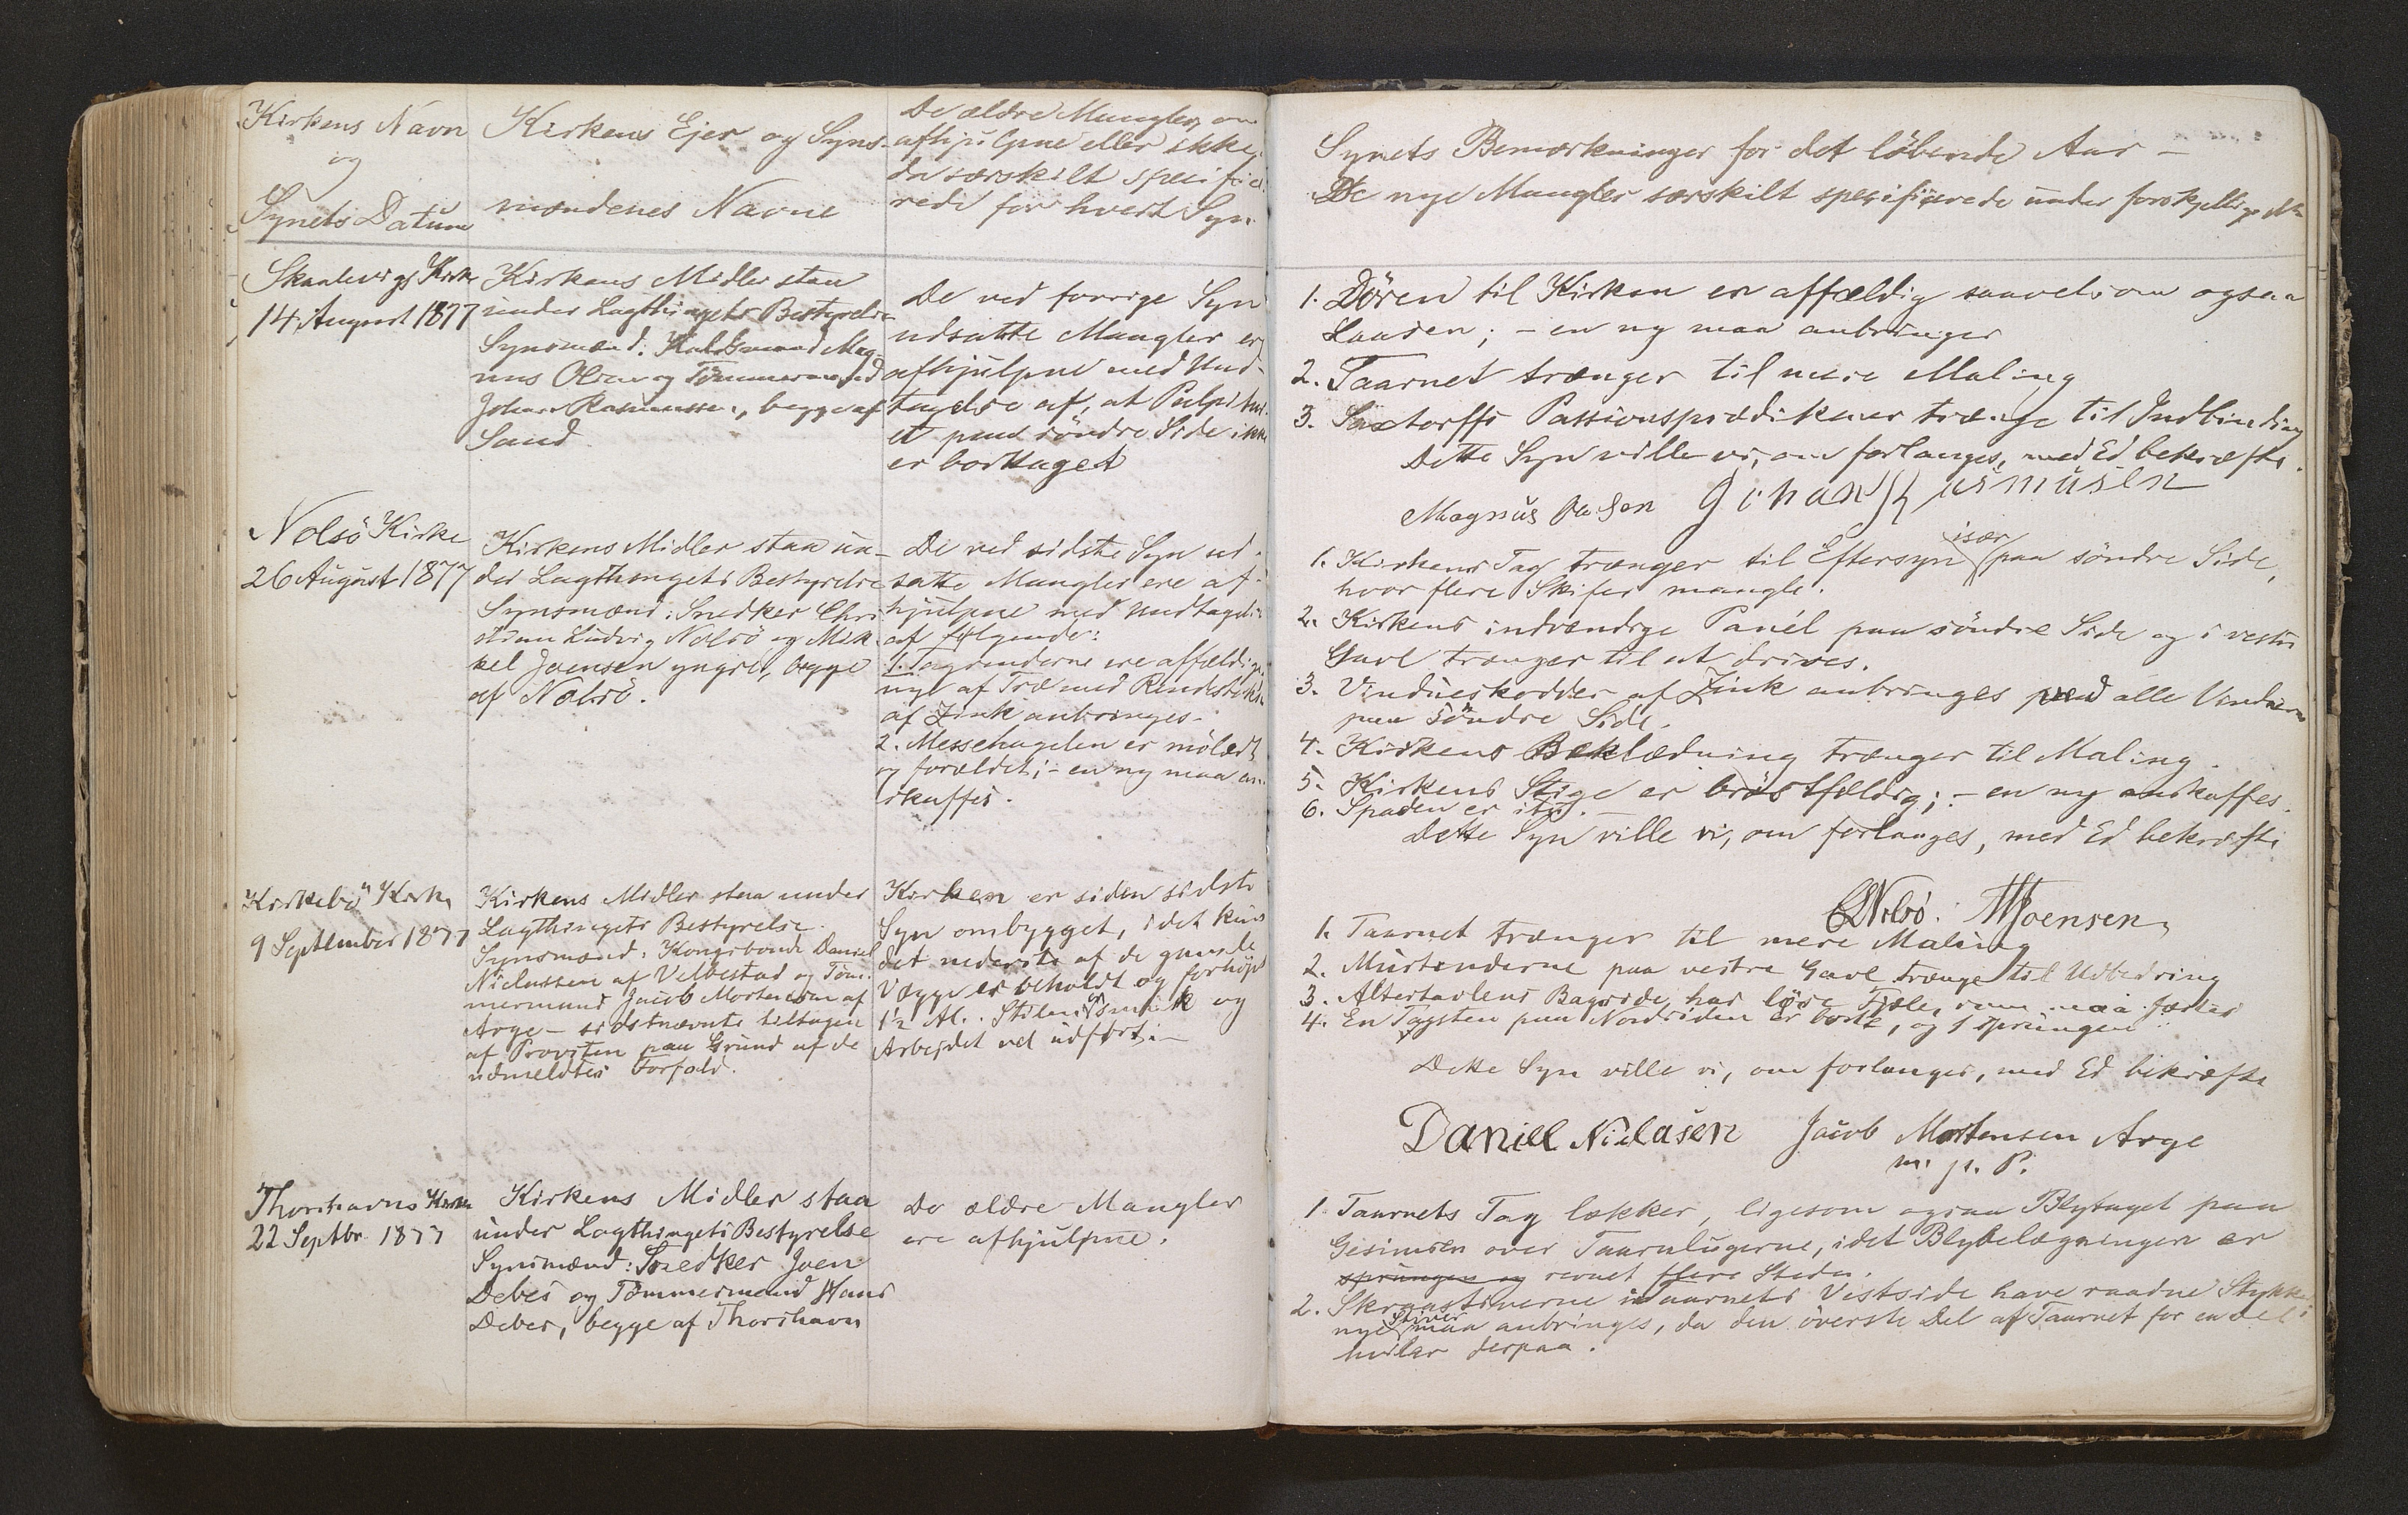 Kirkens Navn
og
Synets Datum
Kirkens Ejer og Syns-
mændenes Navne
De ældre Mangler, om
afhjulpne eller ikke,
da særskilt specifice-
rede for hvert Syn.
Skaalevigs Kirke
14 August 1877
Kirkens Midler staa
under Lagthingets Bestyrelse
Synsmænd: Mag-
nus Olsen og Tømmermand
Johan Rasmussen, begge af
Sand.
De ved forrige Syn
udsatte Mangler er
afhjulpne med Und-
tagelse af, at Pulpitur-
et paa söndre Side ikke
er borttaget
Nolsö Kirke
26 August 1877
Kirkens Midler staa un-
der Lagthingets Bestyrelse
Synsmænd: Snedker Chri-
stian Ludvig Nolsö og Mik-
kel Joensen yngre, begge
af Nolsö.
De ved sidste Syn ud-
satte Mangler ere af-
hjulpne med Undtagelse
af følgende:
1. Tagrenderne ere affældige,
nye af Træ med Rendestykker
af Zink anbringes.
2. Messehagelen er mölædt
og forældet; - en ny maa an-
skaffes.
Kirkebö Kirke
9 September 1877
Kirkens Midler staa under
Lagthingets Bestyrelse.
Synsmænd: Kongsbonde Daniel
Niclassen af Velbestad og Töm-
mermand Jacob Mortensen af
Arge - sidstnævnte tiltagen
af Provsten paa Grund af de
udmeldtes Forfald.
Kirken er siden sidste
Syn ombygget, idet kun
det nederste af de gamle
Vægge er beholdt og forhöjet
1½ Al. Stilen er smuk og
Arbejdet vel udført. -
Thorshavns Kirke
22 Septbr. 1877
Kirkens Midler staa
under Lagthingets Bestyrelse
Synsmænd: Snedker Joen
Debes og Tømmermand Hans
Debes, begge af Thorshavn
De ældre Mangler
ere afhjulpne.
Synets Bemærkninger for det löbende Aar -
De nye Mangler særskilt specificerede under forskjellige
1. Dören til Kirken er affældig saavelsom ogsaa
Laasen; - en ny maa anbringes
2. Taarnet trænger til mere Maling
3. Saxtorffs Passionsprædikener trænge til Indbinding
Dette Syn ville vi, om forlanges, med Ed bekræfte.
Magnus Olsen Johan Rasmusen
1. Kirkens Tag trænger til Eftersyn især paa söndre Side,
hvor flere Skifer mangle.
2. Kirkens indvendige Panel paa söndre Side og i vestre
Gavl trænger til at drives.
3. Vinduesskodder af Zink anbringes ved alle Vinduerne
paa söndre Side.
4. Kirkens Beklædning trænger til Maling.
5. Kirkens Stige er bröstfældig; - en ny anskaffes.
6. Spaden er itu. -
Dette Syn ville vi, om forlanges, med Ed bekræfte
CLNolsö. MJoensen
1. Taarnet trænger til mere Maling
2. Murtenderne paa vestre Gavl trænge til Udbedring
3. Altertavlens Bagside har löse Fjæle, som maa fæstes
4. En Tagsten paa Nordsiden er borte, og 1 sprungen
Dette Syn ville vi, om forlanges, med Ed bekræfte
Daniel Niclasen Jacob Mortensen Arge
m. p. P.
1. Taarnets Tag lækker, ligesom ogsaa Blytaget paa
Gesimsen over Taarnlugerne, idet Blybelægningen er
sprungen og revnet flere Steder.
2. Skraastiverne i Taarnets Vestside have raadne Stykker;
nye Stiver maa anbringes, da den överste Del af Taarnet for en Del
hviler derpaa.